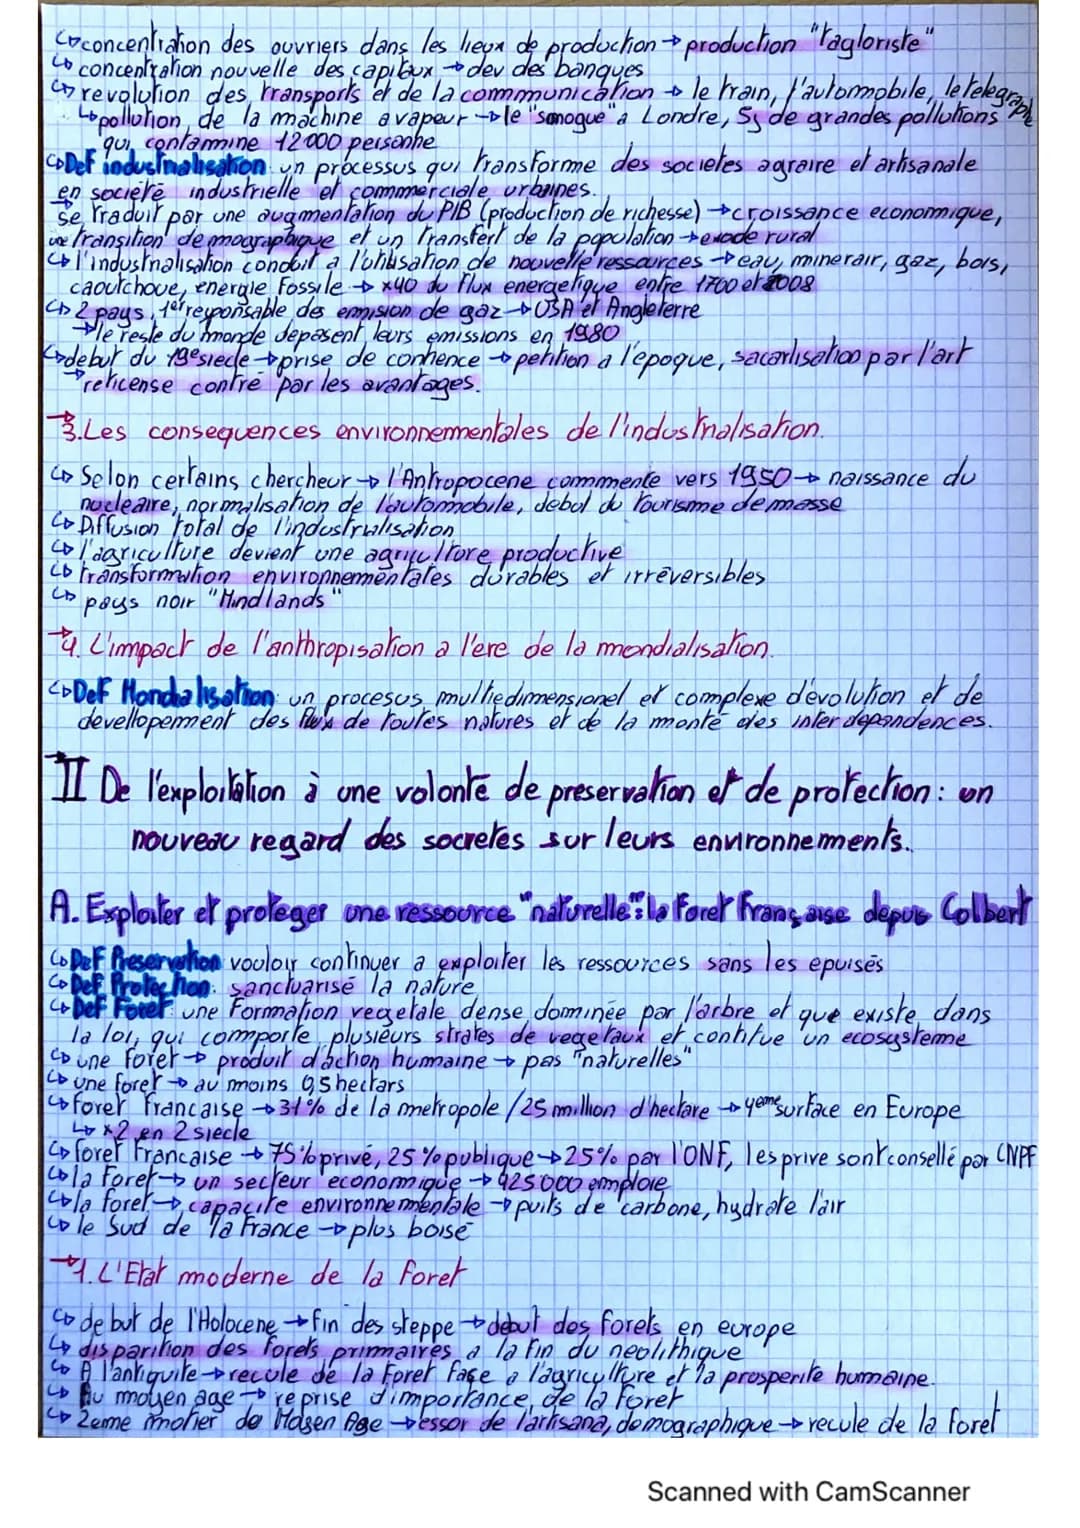 ↳concentration des ouvriers dans les lieux de production → production "tagloriste"
↳ concentration nouvelle des capitaux → dev des banques
↳ revolution des transports et de la commmunication → le train, l'automobile, le telegraphe
↳pollution de la machine a vapeur → le "smogue" a Londre, 5j de grandes pollutions
qui contamine 12 000 personne
↳Def industrialisation: un processus qui transforme des societes agraire et artisanale
en société industrielle et commmerciale urbaines.
se traduit par une augmentation du PIB (production de richesse) → croissance economique,
une transition demographique et un transfert de la population → exode rural
↳ l'industrialisation conduit a l'utilisation de nouvelle ressources → eau, minerair, gaz, bois,
caoutchoue, energie fossile → x40 du flux energetique entre 1700 et 2008
↳ 2 pays, 1er responsable des emmision de gaz → USA et Angleterre
→le reste du monde depasent leurs emissions en 1980
↳debut du 19e siecle → prise de conhence → petition a l'epoque, sacarlisation par l'art
→reticense contre par les avantages.
→3.Les consequences environnementales de l'industrialisation.
↳ Selon certains chercheur → l'Antropocene commente vers 1950 → naissance du
nucleaire, normalisation de l'automobile, debut du tourisme de masse
↳ Diffusion total de l'industrialisation
↳ l'agriculture devient une agriculture productive
↳ transformation environnementales durables et irréversibles
↳ pays noir "Hindlands"
→4. L'impact de l'anthropisation a l'ere de la mondialisation.
↳Def Mondialisation: un procesus multiedimensionel et complexe d'évolution et de
devellopement des flux de toutes natures et de la monté des interdependences.
→II De l'exploitation à une volonté de preservation et de protection: un
nouveau regard des societes sur leurs environnements.
A. Exploiter et proteger une ressource "naturelle": la foret française depuis Colbert
↳Def Preservation vouloir continuer a exploiter les ressources sans les epuisés
↳Def Protection: sanctuarisé la nature
↳Def Foret: une formation vegetale dense dominée par l'arbre et que existe dans
la loi, qui commporte plusieurs strates de vegetaux et contitue un ecosysteme
↳ une foret → produit d'action humaine → pas "naturelles"
↳ une foret → au moins 0,5 hectars
↳ foret francaise → 31% de la metropole / 25 million d'hectare → 4eme surface en Europe
↳ x2 en 2 siecle
↳ foret Francaise → 75% privé, 25% publique → 25% par l'ONF, les prive sont consellé par CNPF
↳ la foret → un secteur economique → 425 000 emploie
↳ la foret → capacite environnementale → puits de carbone, hydrate l'air
↳ le Sud de la France → plus boisé
→1. L'Etat moderne de la foret
↳ debut de l'Holocene → fin des steppe → debut des forets en europe
↳ disparition des forets primaires a la fin du neolithique
↳ A l'antiquite → recule de la foret face a l'agriculture et la prosperite humaine.
↳ Au moyen age → reprise d'importance de la foret
↳ 2eme motier de Moyen Age → essor de l'artisana, demographique → recule de la foret
Scanned with CamScanner